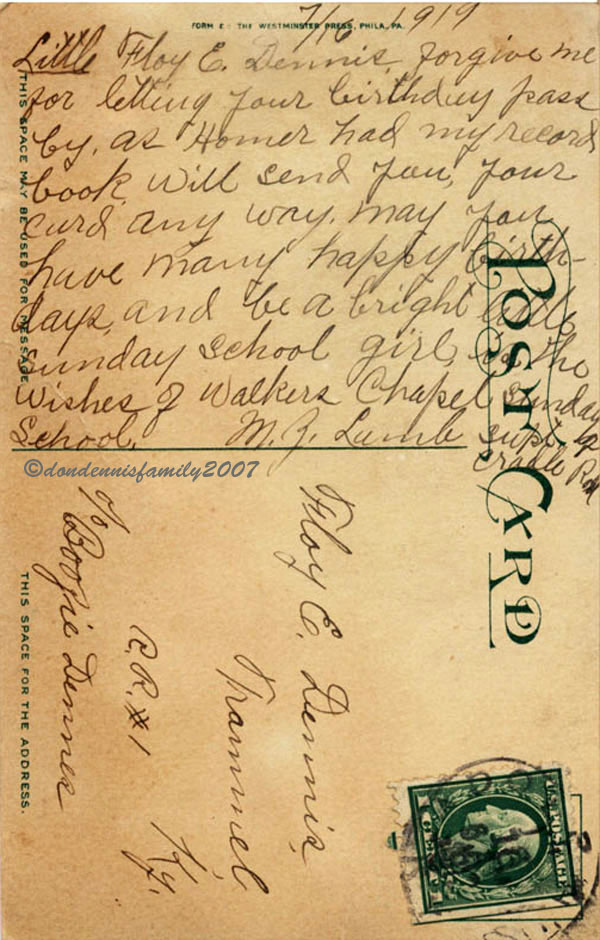 FORM E THE WESTMINSTER PRESS, PHILA, PA.
7/16 1919
Little Floy E. Dennis, forgive me
for letting your birthday pass
by, as Homer had my record
book, will send you, your
card any way. may you
have many happy birth-
days, and be a bright little
Sunday school girl, is the
wishes of Walkers Chapel Sunday
School. M. J. Lamb supt. &
Cradle Roll
THIS SPACE MAY BE USED FOR MESSAGE
©dondennisfamily2007
POST CARD
Floy E. Dennis,
Trammel
Ky.
R.R. #1
c/o Boozie Dennes
THIS SPACE FOR THE ADDRESS.
U.S. POSTAGE